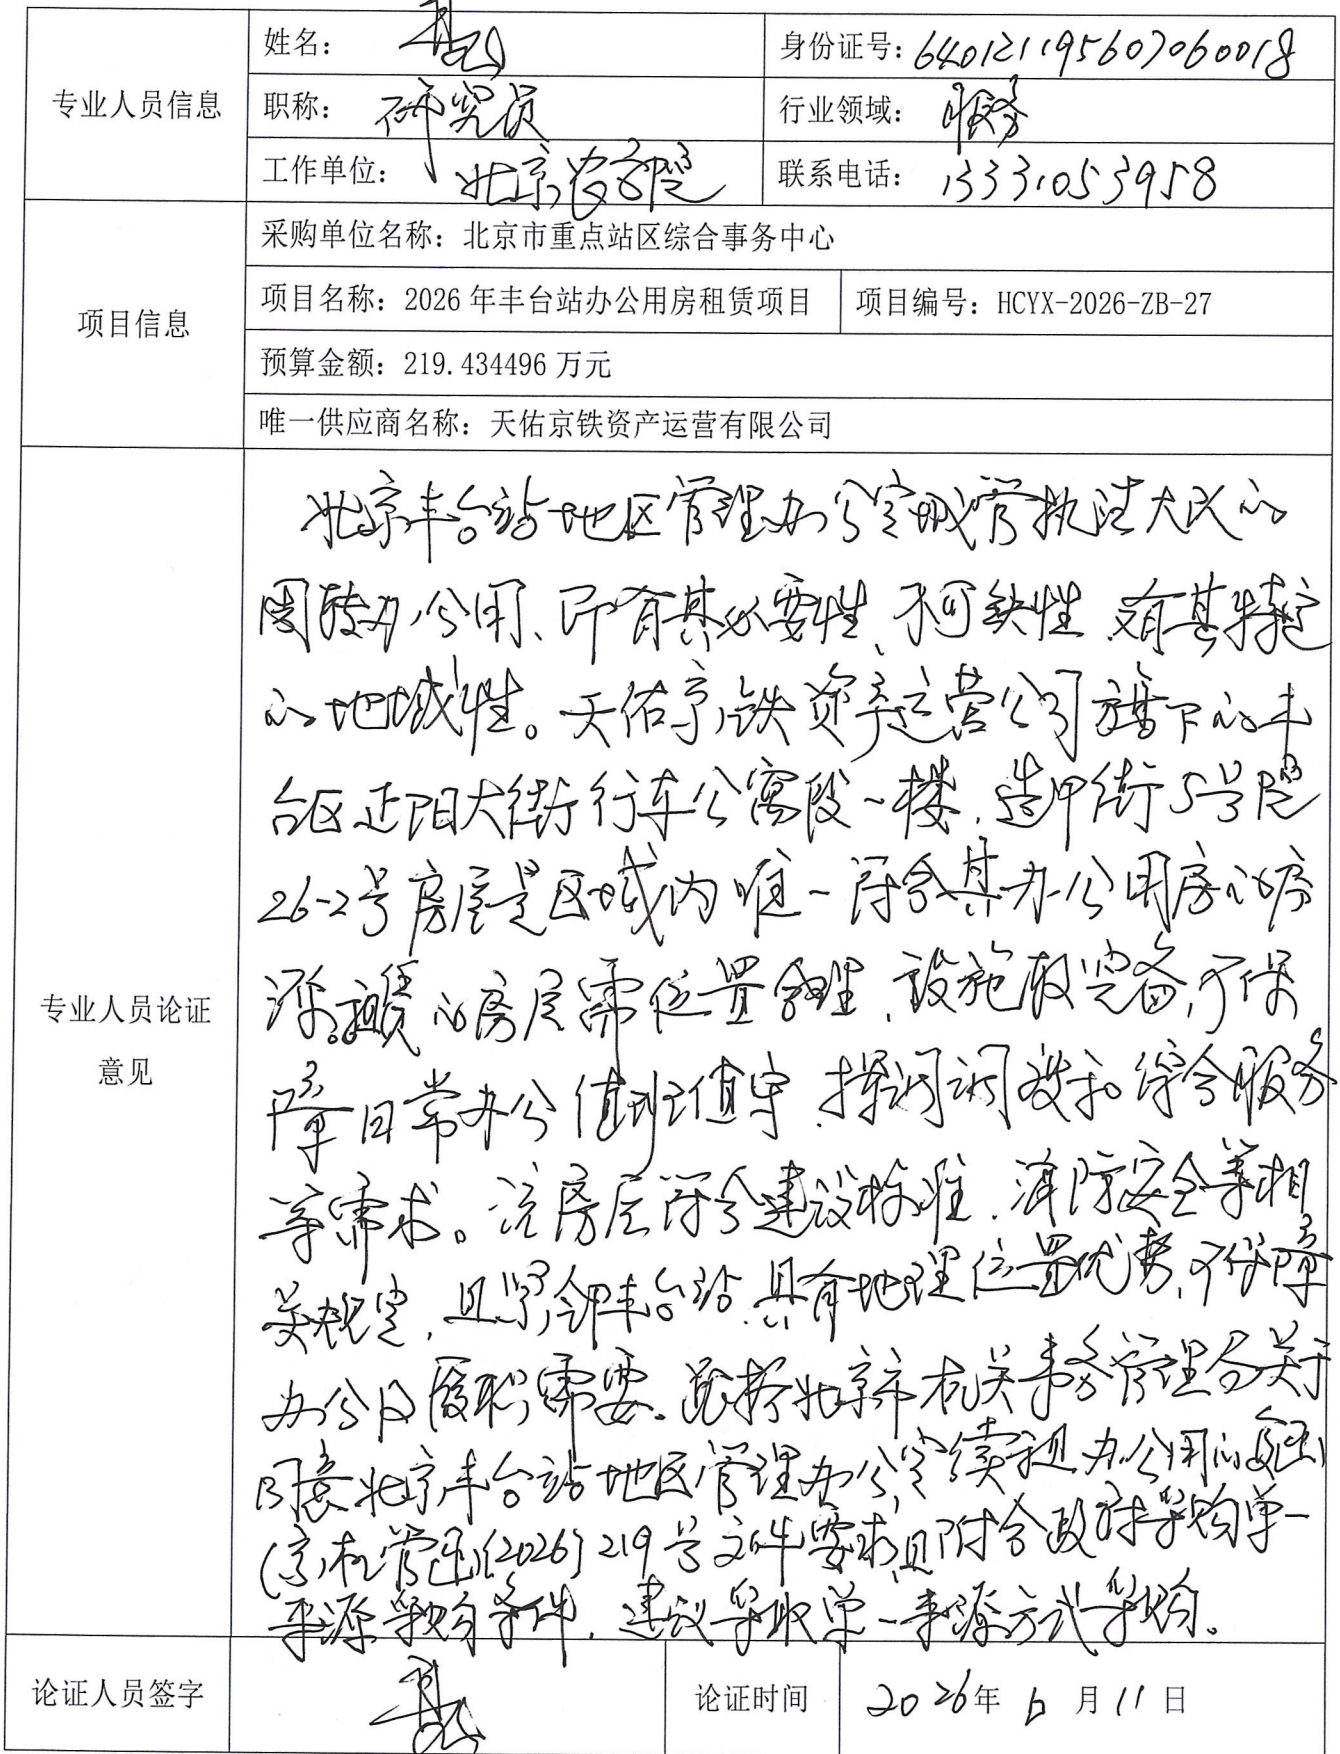 专业人员信息
姓名：
身份证号：640121195607060018
职称：研究员
行业领域：服务
工作单位：北京农学院
联系电话：13331053958
项目信息
采购单位名称：北京市重点站区综合事务中心
项目名称：2026年丰台站办公用房租赁项目
项目编号：HCYX-2026-ZB-27
预算金额：219.434496万元
唯一供应商名称：天佑京铁资产运营有限公司
专业人员论证
意见
北京丰台站地区管理办公室城管执法大队的
周转办公用、即有其必要性、不可缺性、又有其特定
的地域性。天佑京铁资产运营公司旗下的丰
台区正阳大街行车公寓段一楼、造甲街5号院
26-2号房屋是区域内唯一符合其办公用房的房
源。租赁的房屋需位置合理、设施较完备，可保
障日常办公、值班值守、指挥调度和综合服务
等需求。该房屋符合建设标准、消防安全等相
关规定，且紧邻丰台站，具有地理位置优势，可保障
办公及履职需要。根据北京市机关事务管理局关于
同意北京丰台站地区管理办公室续租办公用的复函
(京机管函〔2026〕219号文件要求，且附合政府采购单一
来源采购条件，建议采取单一来源方式采购。
论证人员签字
论证时间
2026年6月11日